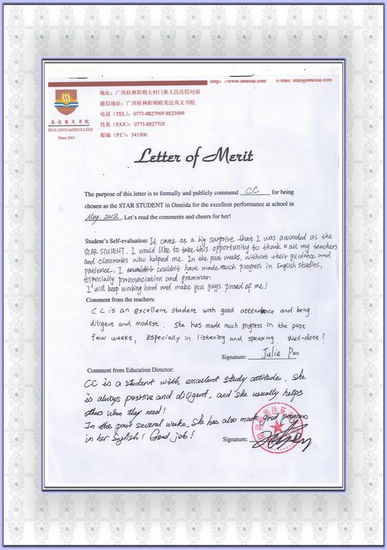 http://www.omeida.com e-mail: eng@omeida.com
地址：广西桂林阳朔大村门新人民法院对面
通信地址：广西桂林阳朔欧美达英文书院
电话（TEL）：0773-8827999 8823999
传真（FAX）：0773-8827705
邮编（P.C）：541900
英文书院
IDALANGUAGECOLLEGE
Since 2001
Letter of Merit
The purpose of this letter is to formally and publicly commend CC for being
chosen as the STAR STUDENT in Omeida for the excellent performance at school in
May. 2012. Let's read the comments and cheers for her!
Student's Self-evaluation: It came as a big surprise that I was awarded as the
STAR STUDENT. I would like to take this opportunity to thank all my teachers
and classmates who helped me. In the past weeks, without their guidance and
patience, I couldn't have made much progress in English studies,
especially pronunciation and grammar.
I'll keep working hard and make you guys proud of me!
Comment from the teachers:
CC is an excellent student with good attendance and being
diligent and modest. She has made much progress in the past
few weeks, especially in listening and speaking. Well-done!
Signature: Julie Pan
Comment from Education Director:
CC is a student with excellent study attitude. She
is always positive and diligent, and she usually helps
others when they need!
In the past several weeks, she has also made great progress
in her English! Good job!
Signature: